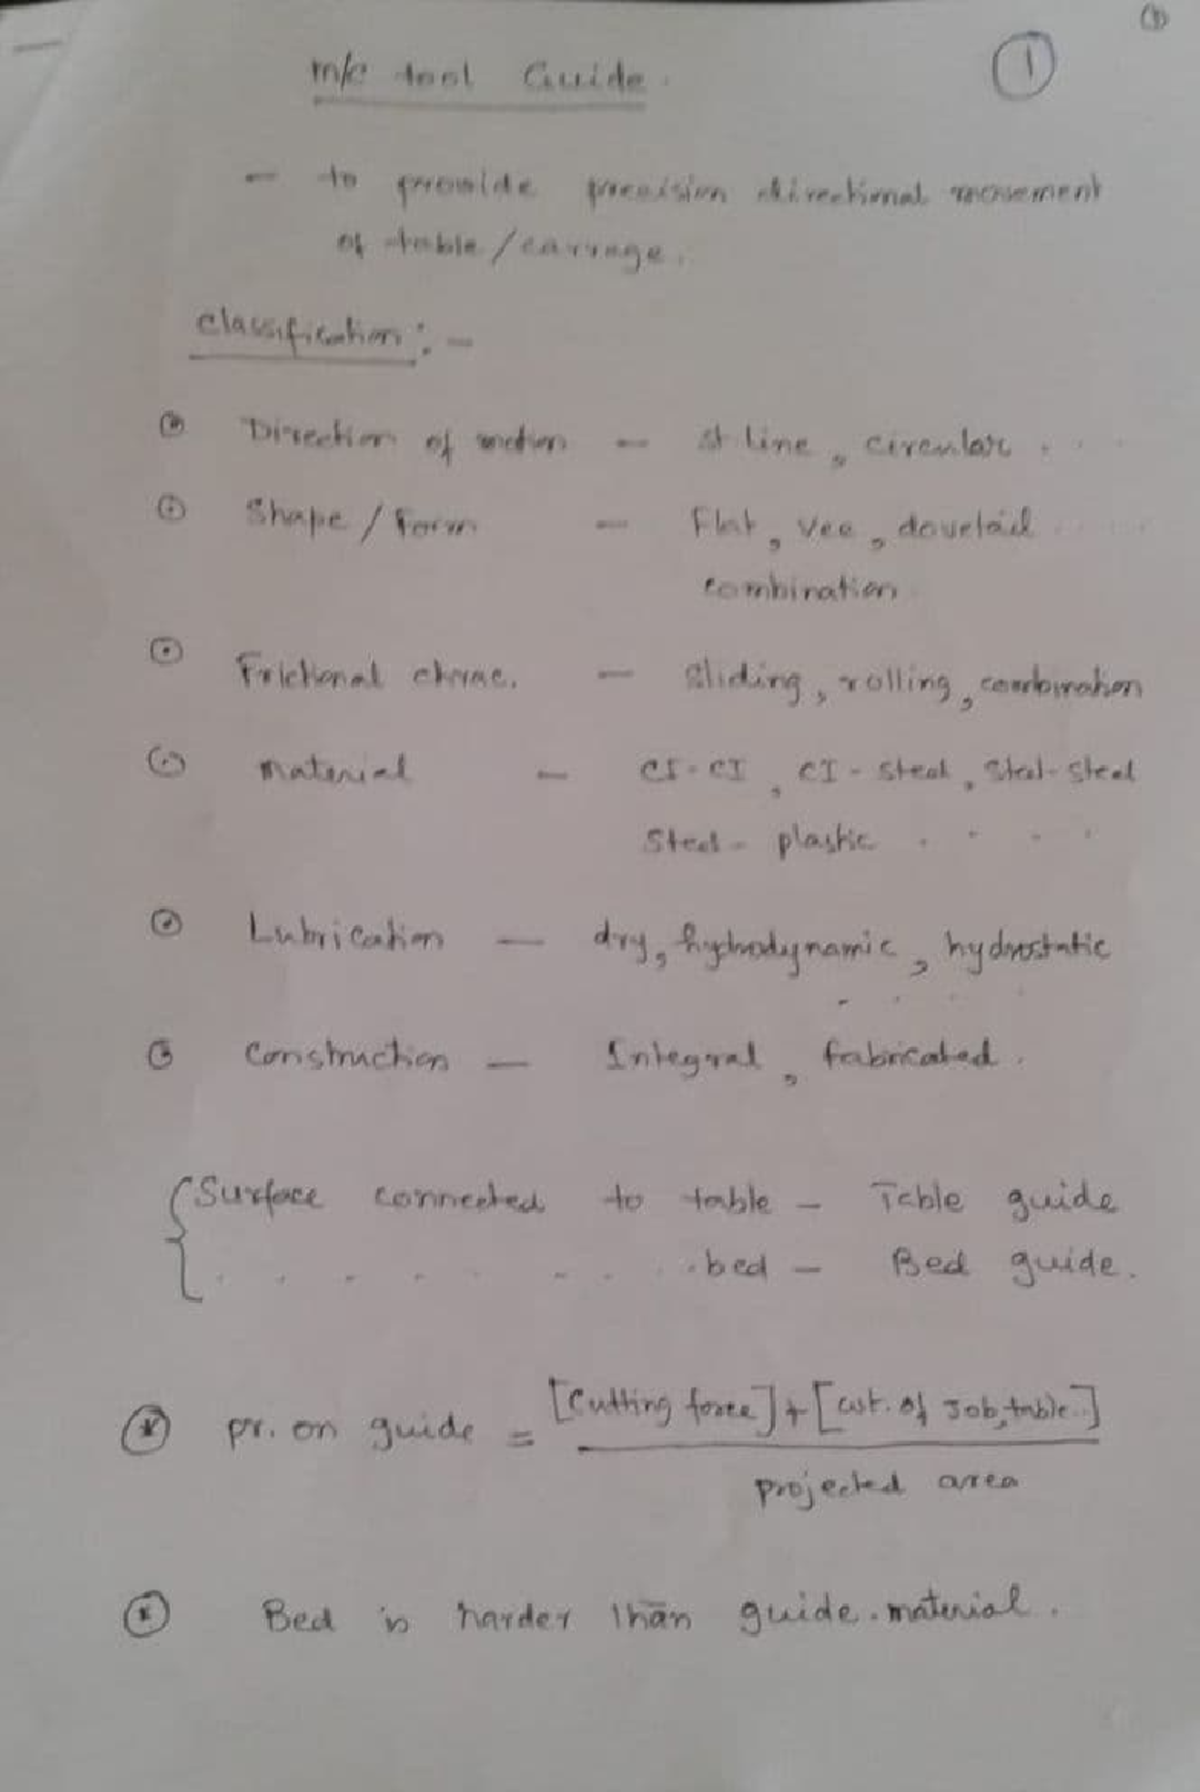 ①
m/c tool Guide.
- to provide precision directional movement
of table/carrage.
Classification :-
Direction of motion - st line, circular . . .
Shape / Form - Flat, Vee, dovetail . . . .
combination
Frictional charac. - Sliding, rolling, combination
material - CI-CI, CI-steel, Steel-steel
Steel-plastic . . . .
Lubrication - dry, hydrodynamic, hydrostatic
. . . .
Construction - Integral, fabricated.
Surface connected to table - Table guide
. . . . . . . bed - Bed guide.
pr. on guide = [Cutting force] + [wt. of Job, table..]
projected area
Bed is harder than guide.material.